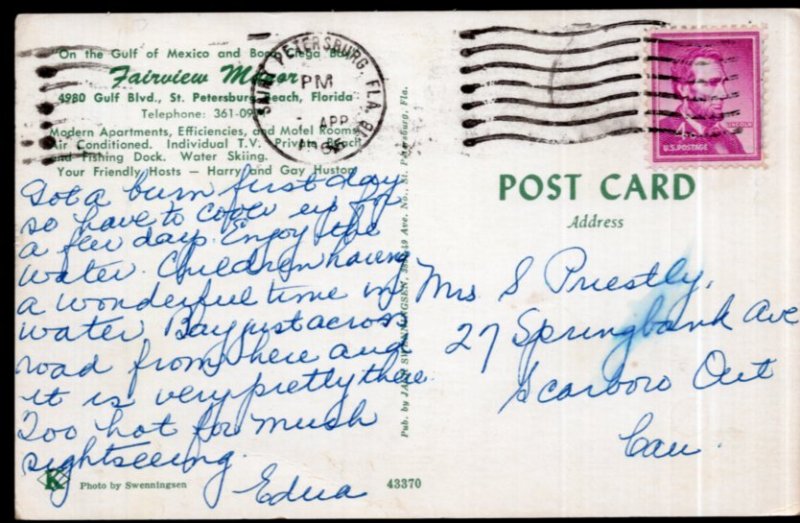 On the Gulf of Mexico and Boca Ciega Bay
Fairview Manor
4980 Gulf Blvd., St. Petersburg Beach, Florida
Telephone: 361-09
Modern Apartments, Efficiencies, and Motel Rooms
Air Conditioned. Individual T.V. Private Beach
and Fishing Dock. Water Skiing.
Your Friendly Hosts — Harry and Gay Huston
SAINT PETERSBURG, FLA.
PM
APR
LINCOLN
U.S. POSTAGE
Got a burn first day
so have to cover up for
a few days. Enjoy the
water. Children having
a wonderful time in
water. Bay just across
road from here and
it is very pretty there.
Too hot for mush
sightseeing.
Edna
K
Photo by Swenningsen
43370
POST CARD
Address
Mrs S Priestly,
27 Springbank Ave
Scarboro Ont
Can.